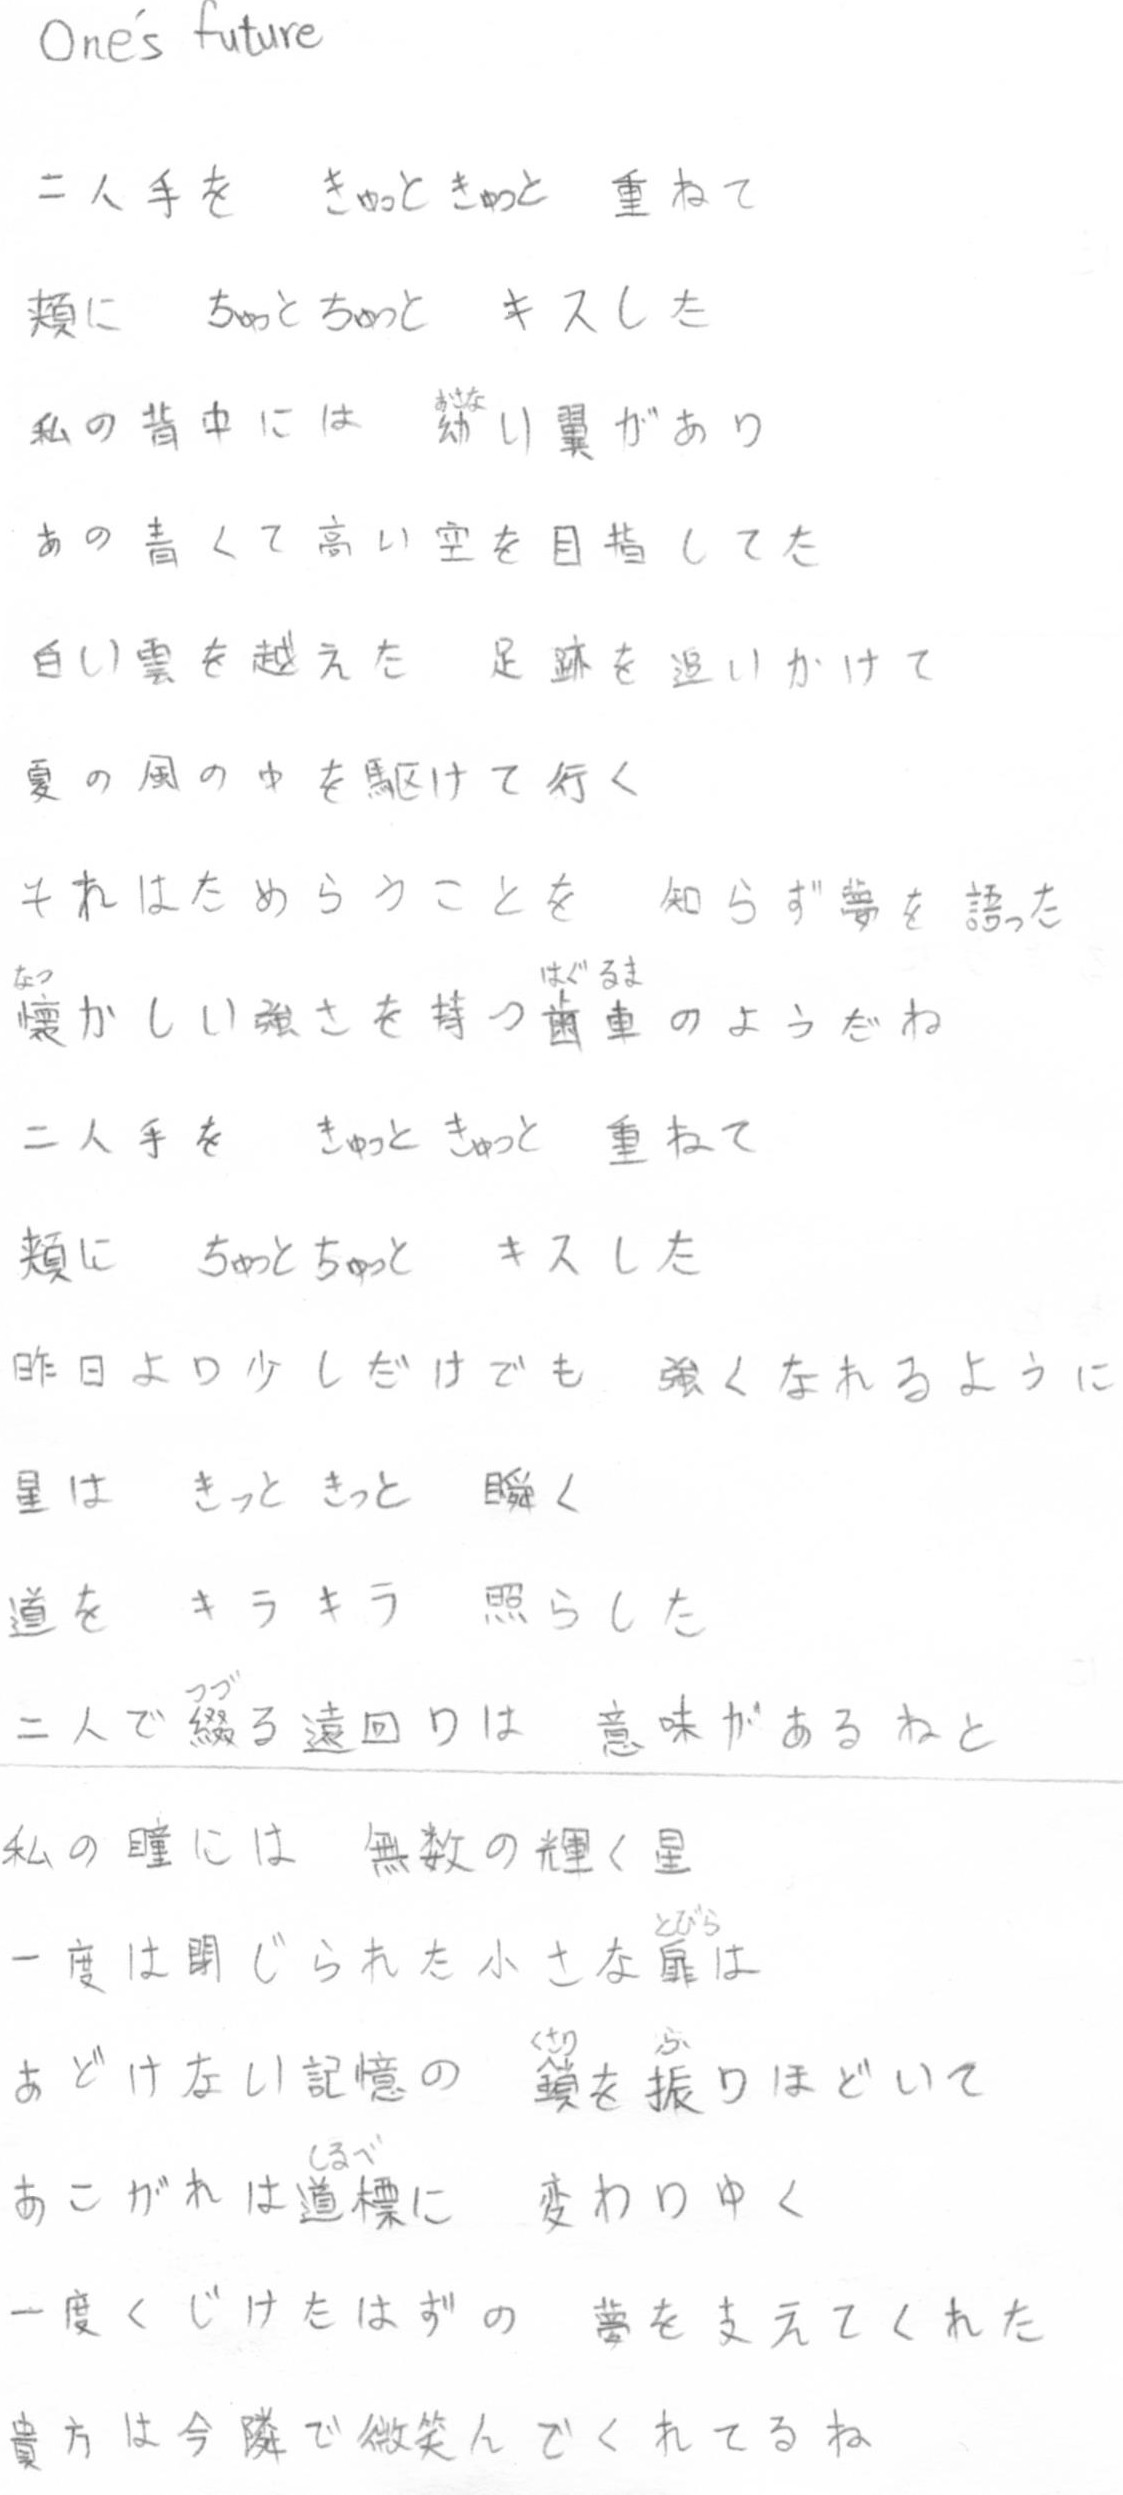 One's future
二人手を　きゅっときゅっと　重ねて
頬に　ちゅっとちゅっと　キスした
おさな
私の背中には　幼い翼があり
あの青くて高い空を目指してた
白い雲を越えた　足跡を追いかけて
夏の風の中を駆けて行く
それはためらうことを　知らず夢を語った
なつ　はぐるま
懐かしい強さを持つ歯車のようだね
二人手を　きゅっときゅっと　重ねて
頬に　ちゅっとちゅっと　キスした
昨日より少しだけでも　強くなれるように
星は　きっときっと　瞬く
道を　キラキラ　照らした
つづ
二人で綴る遠回りは　意味があるねと
私の瞳には　無数の輝く星
とびら
一度は閉じられた小さな扉は
くさり　ふ
あどけない記憶の　鎖を振りほどいて
しるべ
あこがれは道標に　変わりゆく
一度くじけたはずの　夢を支えてくれた
貴方は今隣で微笑んでくれてるね